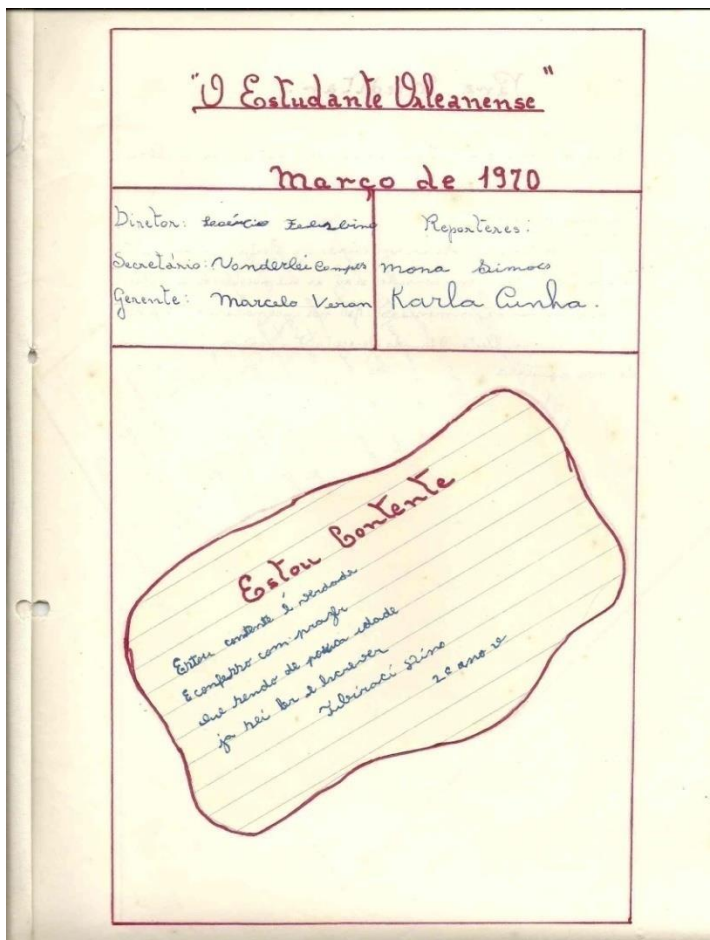 "O Estudante Orleanense"
Março de 1970
Diretor:
Secretário: Vanderlei Campos
Gerente: Marcelo Veran
Reporteres:
mona Simoes
Karla Cunha.
Estou Contente
Estou contente é verdade
E confesso com prazer
que sendo de pouca idade
ja sei ler e escrever
Zino
2º ano